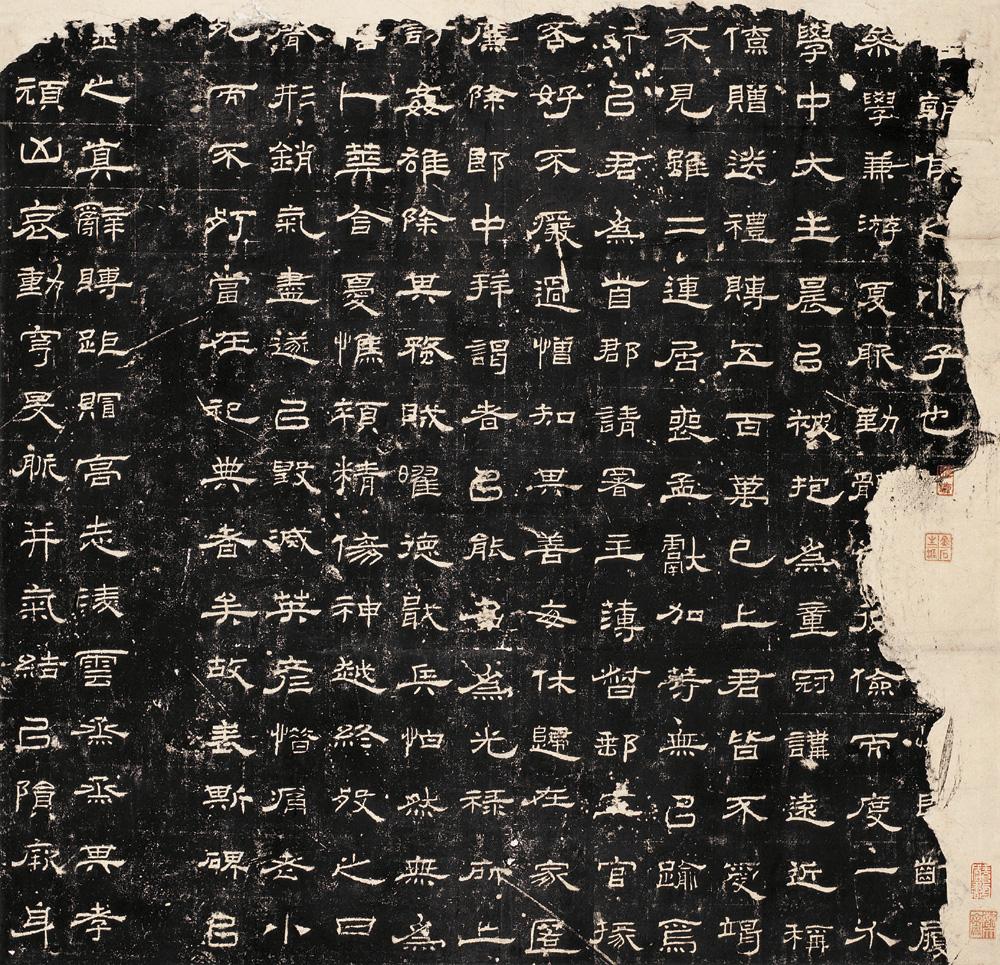 朝侯之小子也 齒履
學兼游夏服勤 儉而度一介
學中大主晨以被抱為童冠講遠近稱
僚贈送禮賻五百萬已上君皆不受竭
不見雖二連居喪孟獻加等無以踰焉
計以君為首郡請署主簿督郵五官掾
否好不廢過憎知其善每休歸在家匿
廉除郎中拜謁者以能名為光祿所上
討姦雄除其蝥賊曜德戢兵怕然無為
人葬合憂憔顇精傷神越終歿之日
聲形銷氣盡遂以毀滅英彥惜痛老小
凡而不朽當在祀典者矣故表斯碑以
之真辭賻距賵高志淩雲烝烝其孝
頑凶哀動穹旻脈并氣結以隕厥身